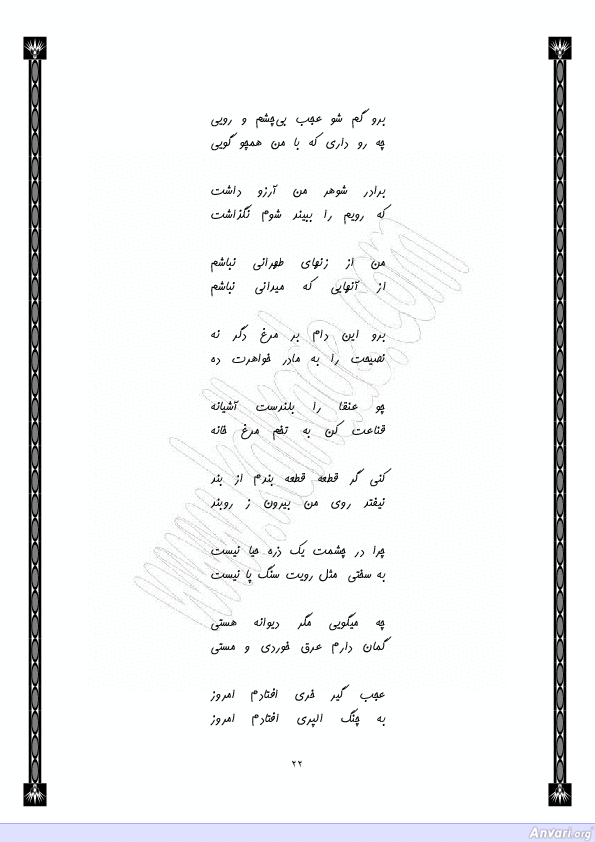 برو گم شو عجب بی‌چشم و رویی
چه رو داری که با من همچو گویی
برادر شوهر من آرزو داشت
که رویم را ببیند شوم نگذاشت
من از زنهای طهرانی نباشم
از آنهایی که میدانی نباشم
برو این دام بر مرغ دگر نه
نصیحت را به مادر خواهرت ده
چو عنقا را بلندست آشیانه
قناعت کن به تخم مرغ خانه
کنی گر قطعه قطعه بندم از بند
نیفتد روی من بیرون ز روبند
چرا در چشمت یک ذره حیا نیست
به سختی مثل رویت سنگ پا نیست
چه میگویی مگر دیوانه هستی
گمان دارم عرق خوردی و مستی
عجب گیر خری افتادم امروز
به چنگ الپری افتادم امروز
۲۲
Anvari.org